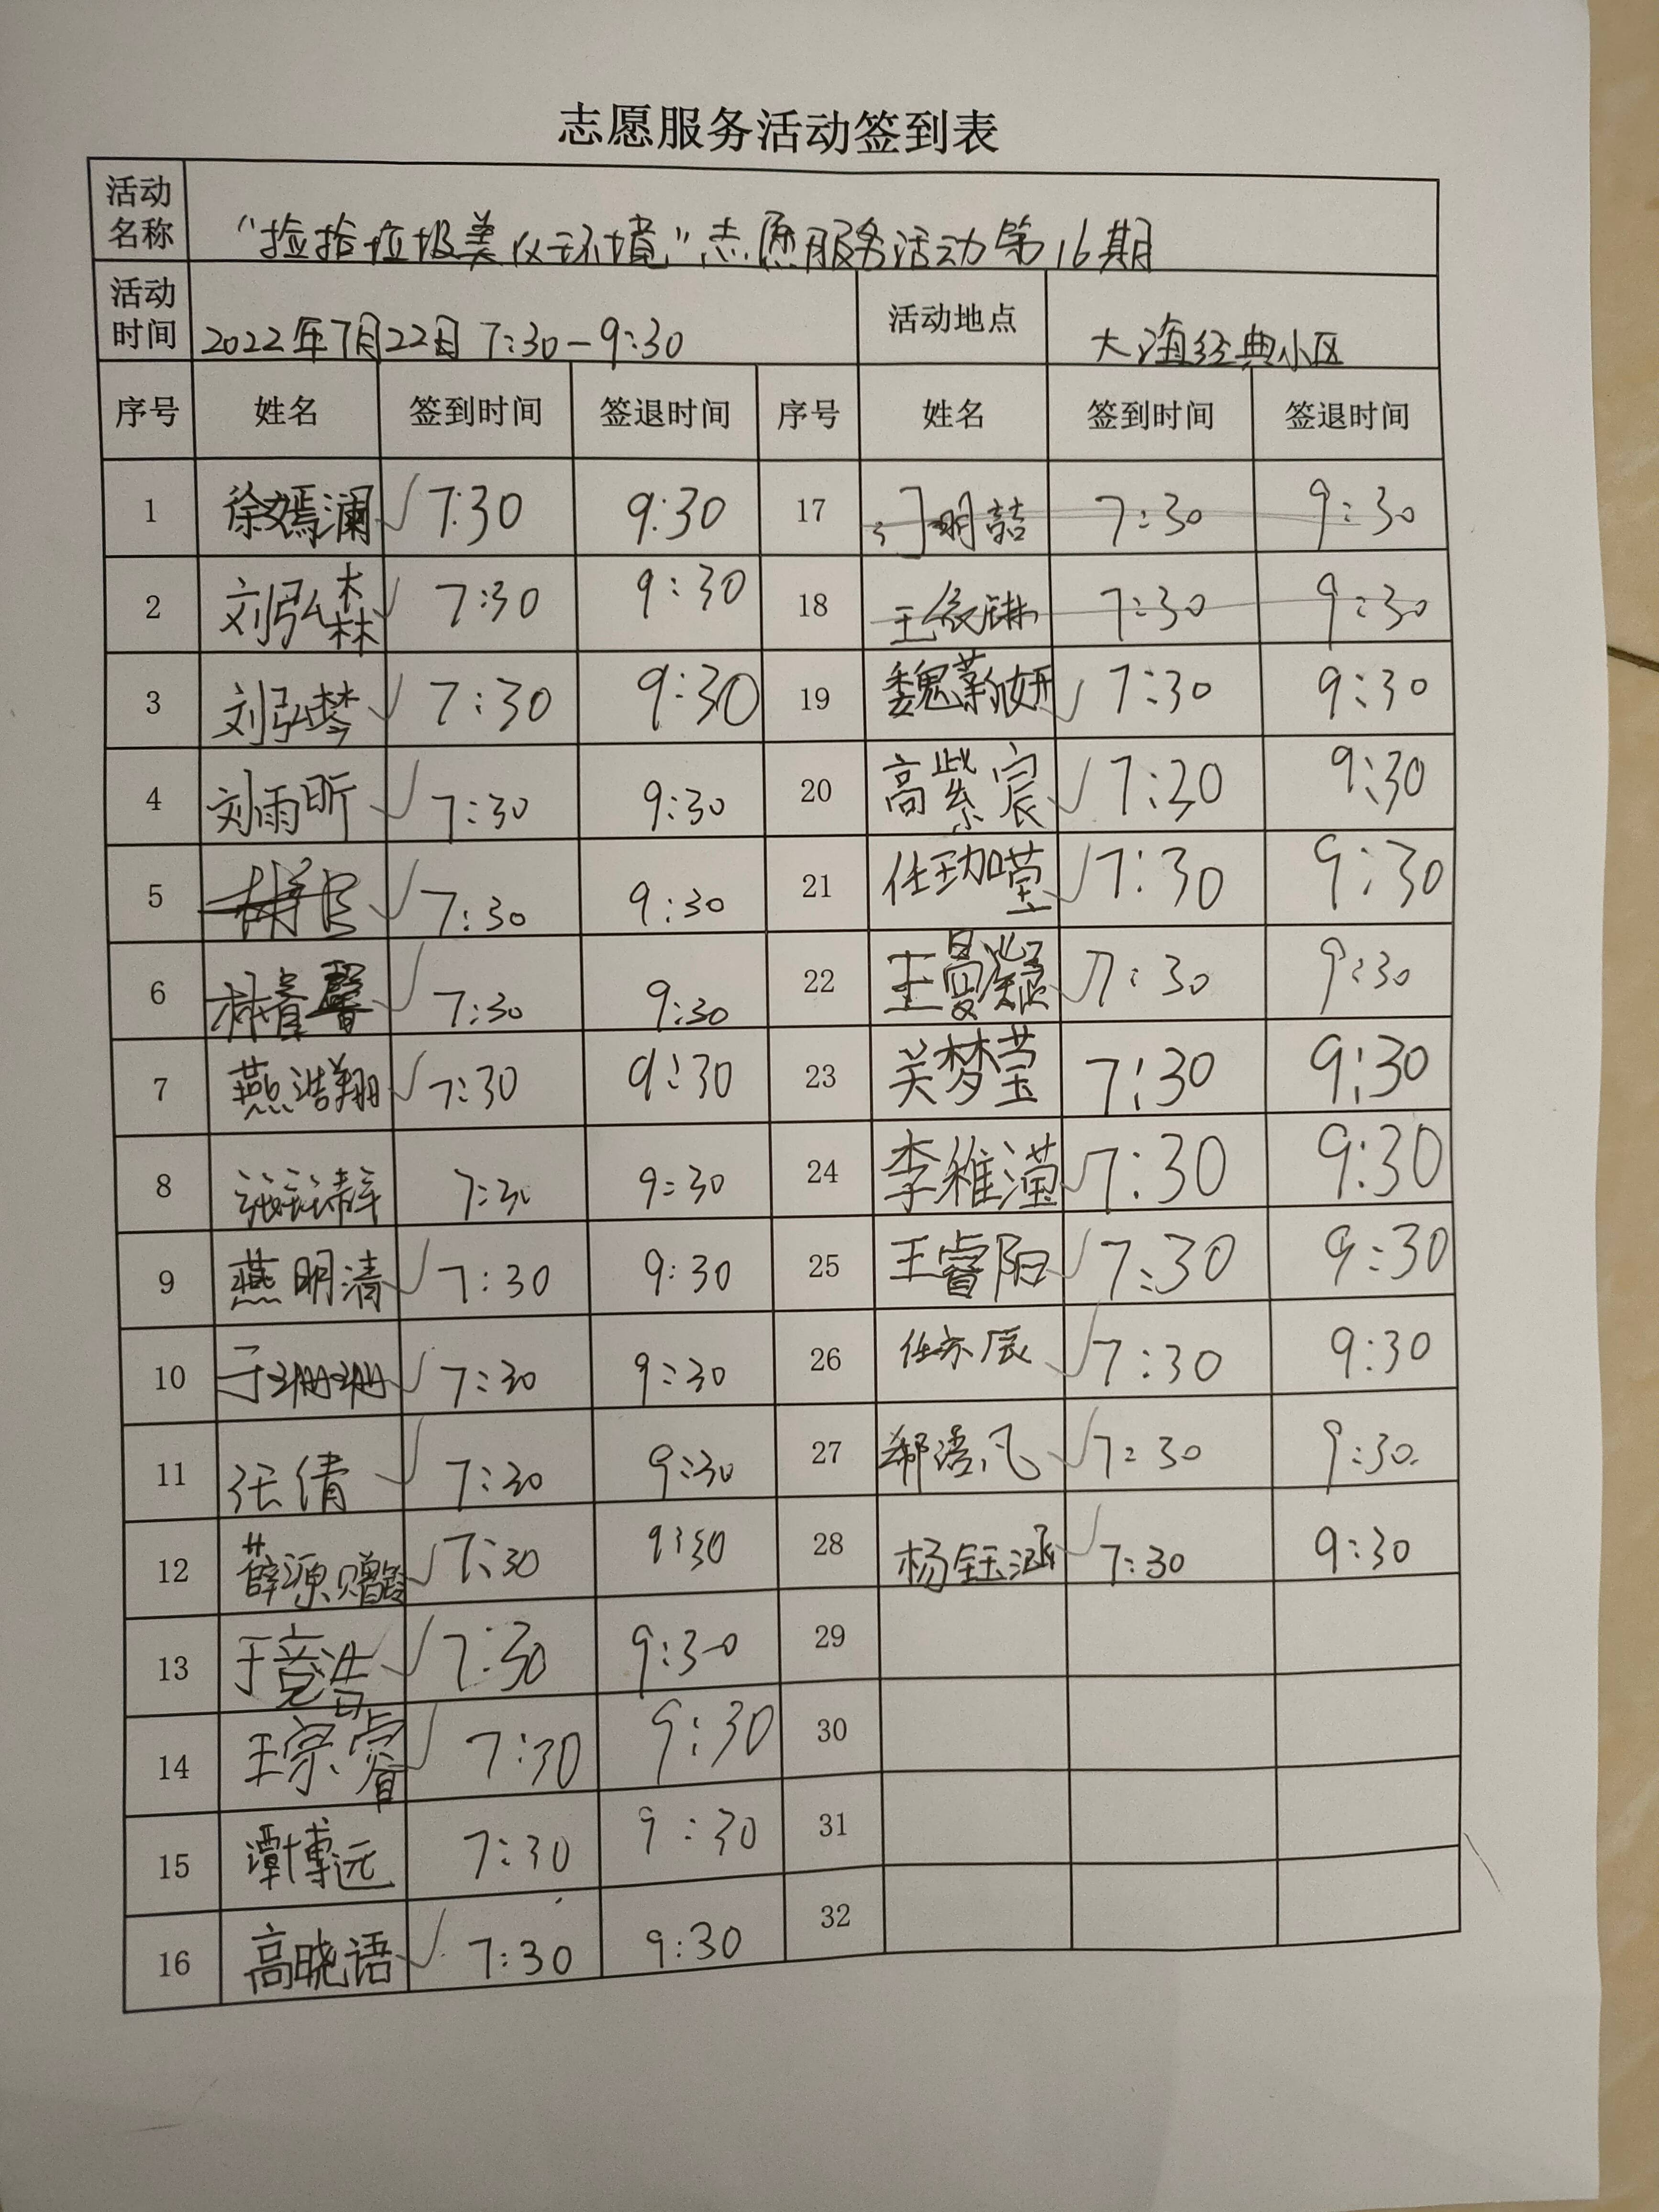 志愿服务活动签到表
活动名称 "捡拾垃圾美化环境"志愿服务活动第16期
活动时间 2022年7月22日 7:30-9:30 活动地点 大海经典小区
序号 姓名 签到时间 签退时间 序号 姓名 签到时间 签退时间
1 徐嫣澜 7:30 9:30 17 7:30 9:30
2 刘弘森 7:30 9:30 18 7:30 9:30
3 刘弘梦 7:30 9:30 19 魏新妍 7:30 9:30
4 刘雨昕 7:30 9:30 20 高紫宸 7:30 9:30
5 7:30 9:30 21 7:30 9:30
6 7:30 9:30 22 王曼凝 7:30 9:30
7 燕浩翔 7:30 9:30 23 关梦莹 7:30 9:30
8 7:30 9:30 24 李稚滢 7:30 9:30
9 燕明清 7:30 9:30 25 王睿阳 7:30 9:30
10 于珊珊 7:30 9:30 26 任亦辰 7:30 9:30
11 张倩 7:30 9:30 27 7:30 9:30
12 薛源 7:30 9:30 28 杨钰涵 7:30 9:30
13 于竞浩 7:30 9:30 29
14 王宗睿 7:30 9:30 30
15 潭博远 7:30 9:30 31
16 高晓语 7:30 9:30 32